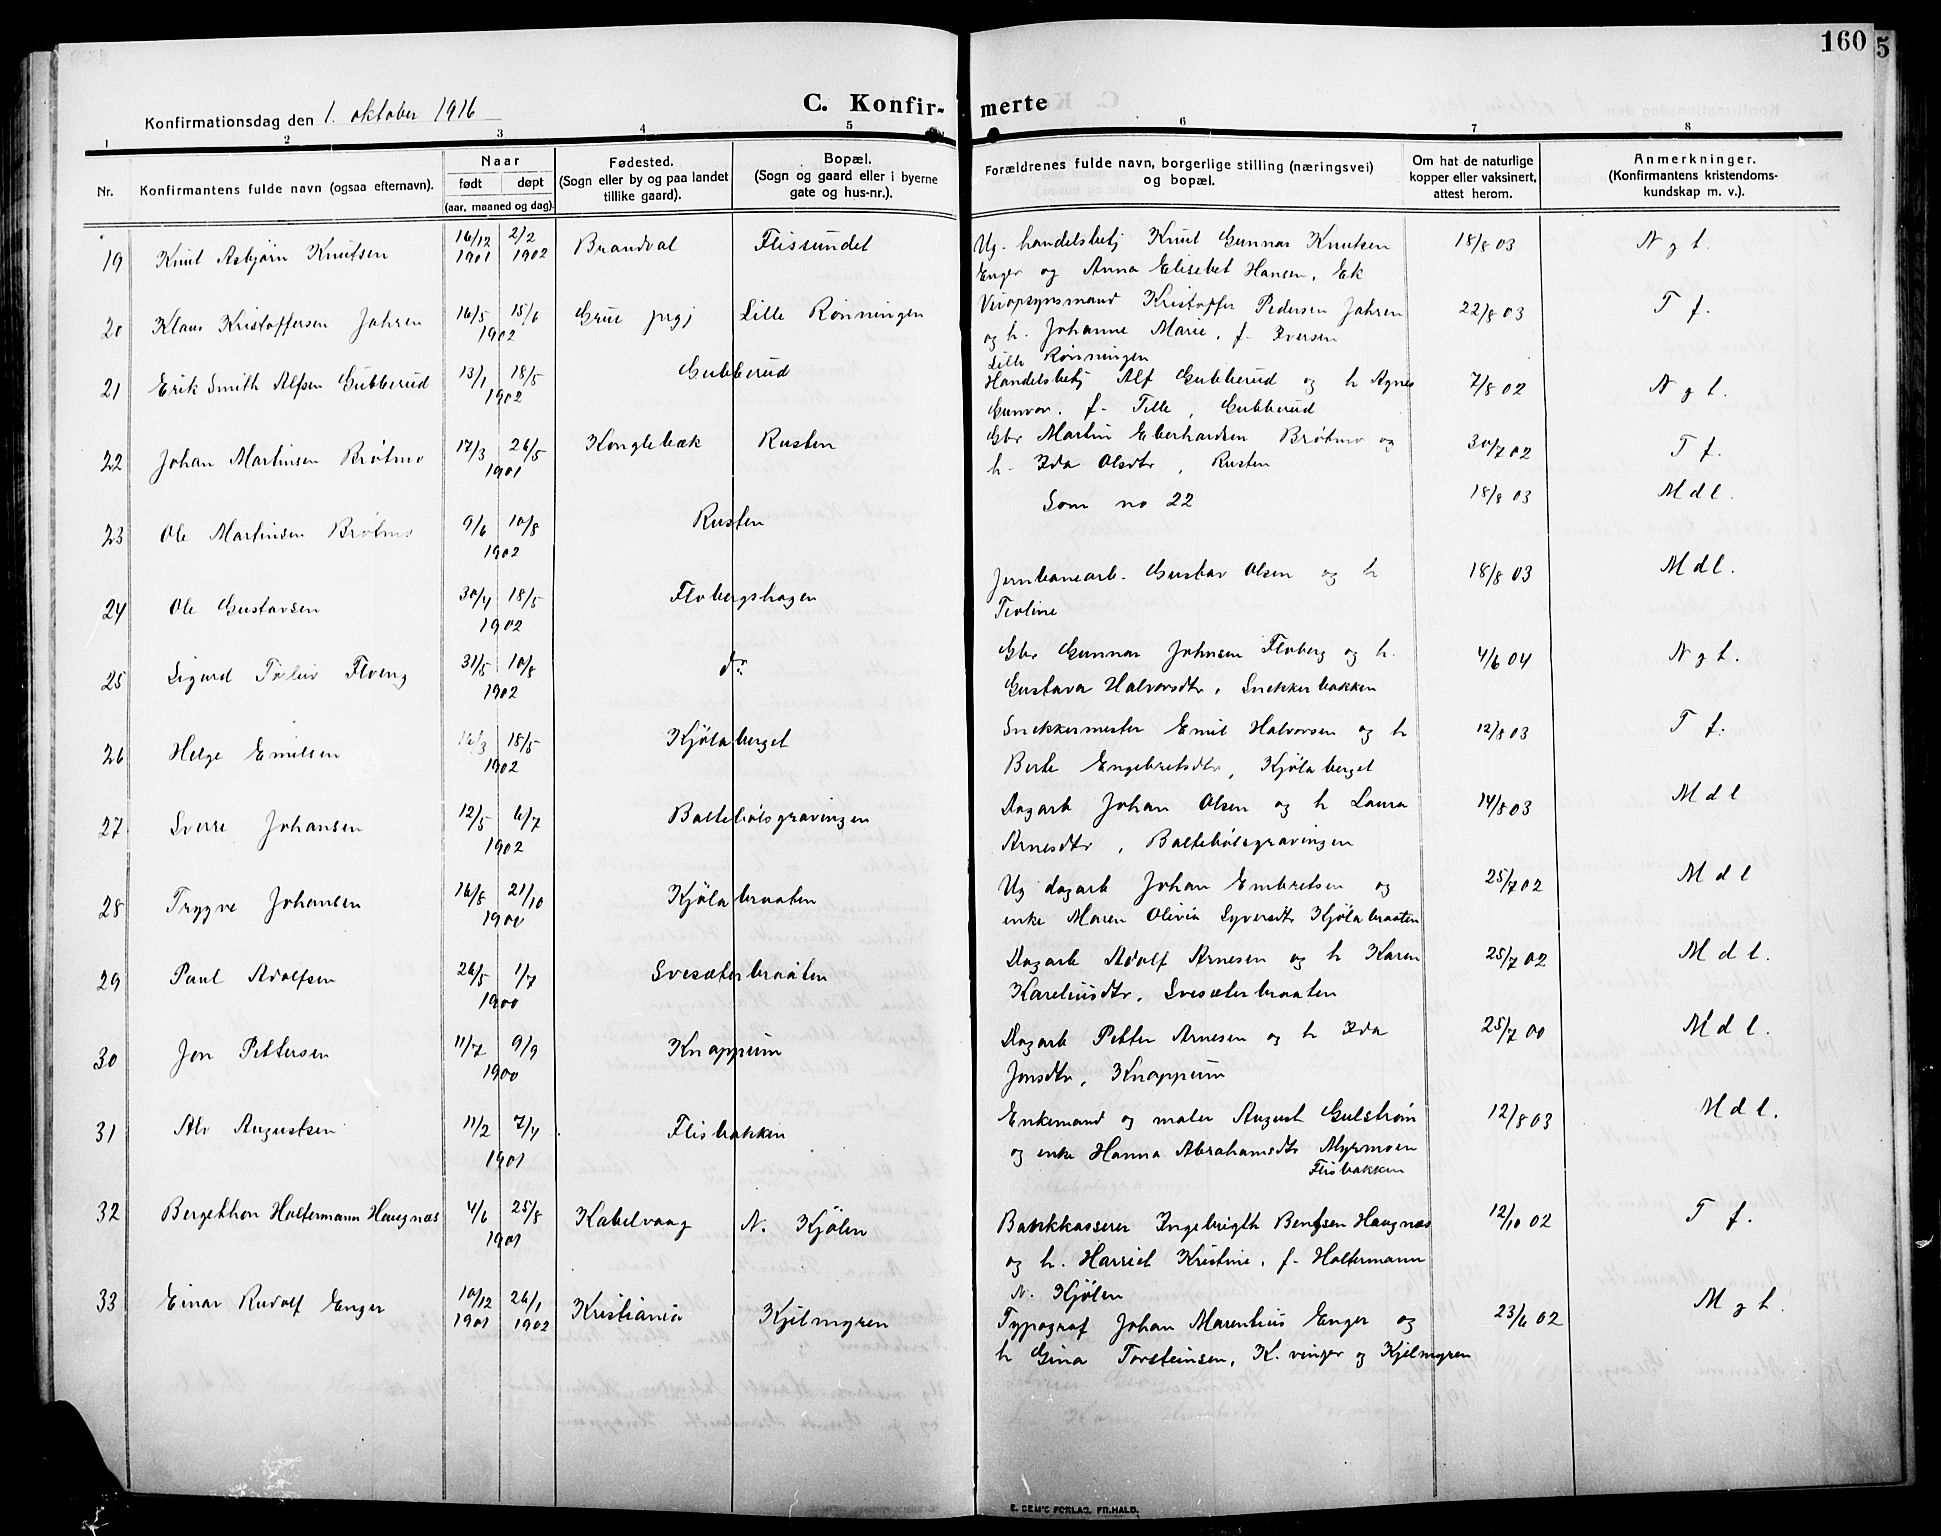 160
5
C. Konfir- merte
Konfirmationsdag den 1. oktober 1916
1 2 3 4 5 6 7 8
Nr.
Konfirmantens fulde navn (ogsaa efternavn).
Naar
født døpt
(aar, maaned og dag).
Fødested.
(Sogn eller by og paa landet
tillike gaard).
Bopæl.
(Sogn og gaard eller i byerne
gate og hus-nr.).
Forældrenes fulde navn, borgerlige stilling (næringsvei)
og bopæl.
Om hat de naturlige
kopper eller vaksinert,
attest herom.
Anmerkninger.
(Konfirmantens kristendoms-
kundskap m. v.).
19 Knut Asbjørn Knutsen 16/12 1901 2/2 1902 Brandval Flissundet Ug. handelsbetj Knut Gunnar Knutsen 18/8 03 N g t.
Enger og Anna Elisebet Hansen, Ek
20 Klaus Kristoffersen Jahren 16/5 15/6 1902 Grue prgj Lille Rønningen Veiopsynsmand Kristoffer Pedersen Jahren 22/8 03 T f.
og h. Johanne Marie, f. Iversen
Lille Rønningen
21 Erik Smith Alfsen Gubberud 13/1 18/5 1902 Gubberud Handelsbetj Alf Gubberud og h Agnes 7/8 02 N g t.
Gunvor, f. Tille, Gubberud
22 Johan Martinsen Brøtmo 17/3 26/5 1901 Konglebæk Rusten Gbr Martin Eberhardsen Brøtmo og 30/7 02 T f.
h. Ida Olsdtr, Rusten
23 Ole Martinsen Brøtmo 9/6 10/8 1902 Rusten Som no 22 18/8 03 M d l.
24 Ole Gustavsen 30/4 18/5 1902 Flobergshagen Jernbanearb. Gustav Olsen og h 18/8 03 M d l.
Teoline
25 Sigurd Torleiv Floeng 31/5 10/8 1902 do Gbr Gunnar Johnsen Floberg og h. 4/6 04 N g t.
Gustava Halvorsdtr, Snekkerbakken
26 Helge Emilsen 16/3 18/5 1902 Kjølaberget Snekkermester Emil Halvorsen og h 12/8 03 T f.
Berte Engebretsdtr, Kjølaberget
27 Sverre Johansen 12/5 6/7 1902 Baltebølsgravingen Dagarb Johan Olsen og h Laura 14/8 03 M d l
Arnesdtr, Baltebølsgravingen
28 Trygve Johansen 16/8 21/10 1900 Kjølabraaten Ug dagarb Johan Embretsen og 25/7 02 M d l
enke Maren Olivia Syversdtr Kjølabraaten
29 Paul Adolfsen 26/5 1/7 1900 Svesæterbraaten Dagarb Adolf Arnesen og h Karen 25/7 02 M d l.
Kareliusdtr, Svesæterbraaten
30 Jon Pettersen 11/7 9/9 1900 Knappum Dagarb Petter Arnesen og h Ida 25/7 00 M d l.
Jonsdtr, Knappum
31 Alv Augustsen 11/2 7/4 1901 Flisbakken Enkemand og maler August Gulstrøm 12/8 03 M d l.
og enke Hanna Abrahamsdtr Myrmoen
Flisbakken
32 Bergithon Holtermann Haugnæs 4/6 25/8 1901 Kabelvaag N. Kjølen Bankkasserer Ingebrigth Bentsen Haugnæs 12/10 02 T f.
og h. Harriet Kristine, f. Holtermann
N. Kjølen
33 Einar Rudolf Enger 10/12 1901 26/1 1902 Kristiania Kjelmyren Typograf Johan Marenhius Enger og 23/6 02 M g t.
h Gina Torsteinsen, K.vinger og Kjelmyren
E. SEM'S FORLAG, FR.HALD.